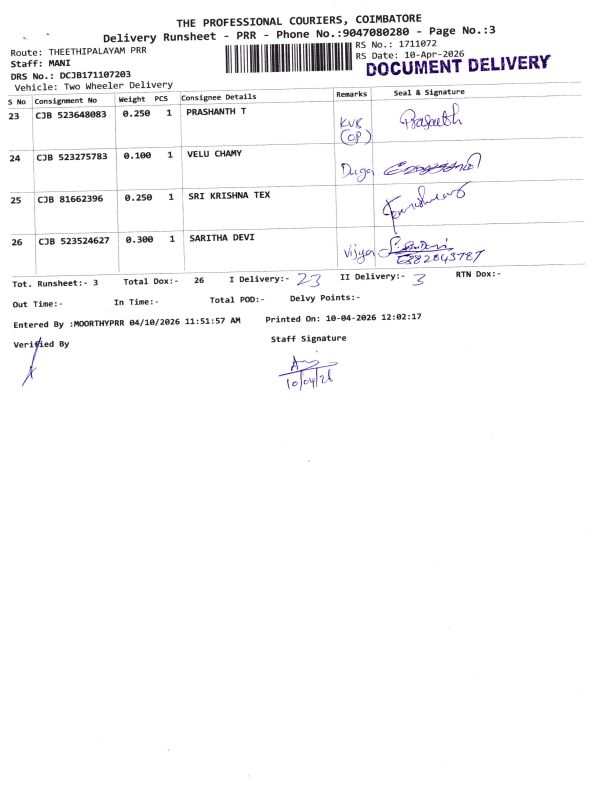 THE PROFESSIONAL COURIERS, COIMBATORE
Delivery Runsheet - PRR - Phone No.:9047080280 - Page No.:3
Route: THEETHIPALAYAM PRR
RS No.: 1711072
Staff: MANI
RS Date: 10-Apr-2026
DRS No.: DCJB171107203
DOCUMENT DELIVERY
Vehicle: Two Wheeler Delivery
S No Consignment No Weight PCS Consignee Details Remarks Seal & Signature
23 CJB 523648083 0.250 1 PRASHANTH T KVB
(OP)
24 CJB 523275783 0.100 1 VELU CHAMY Duga
25 CJB 81662396 0.250 1 SRI KRISHNA TEX
26 CJB 523524627 0.300 1 SARITHA DEVI Vijya
Tot. Runsheet:- 3 Total Dox:- 26 I Delivery:- 23 II Delivery:- 3 RTN Dox:-
Out Time:- In Time:- Total POD:- Delvy Points:-
Entered By :MOORTHYPRR 04/10/2026 11:51:57 AM Printed On: 10-04-2026 12:02:17
Verified By Staff Signature
10/04/26